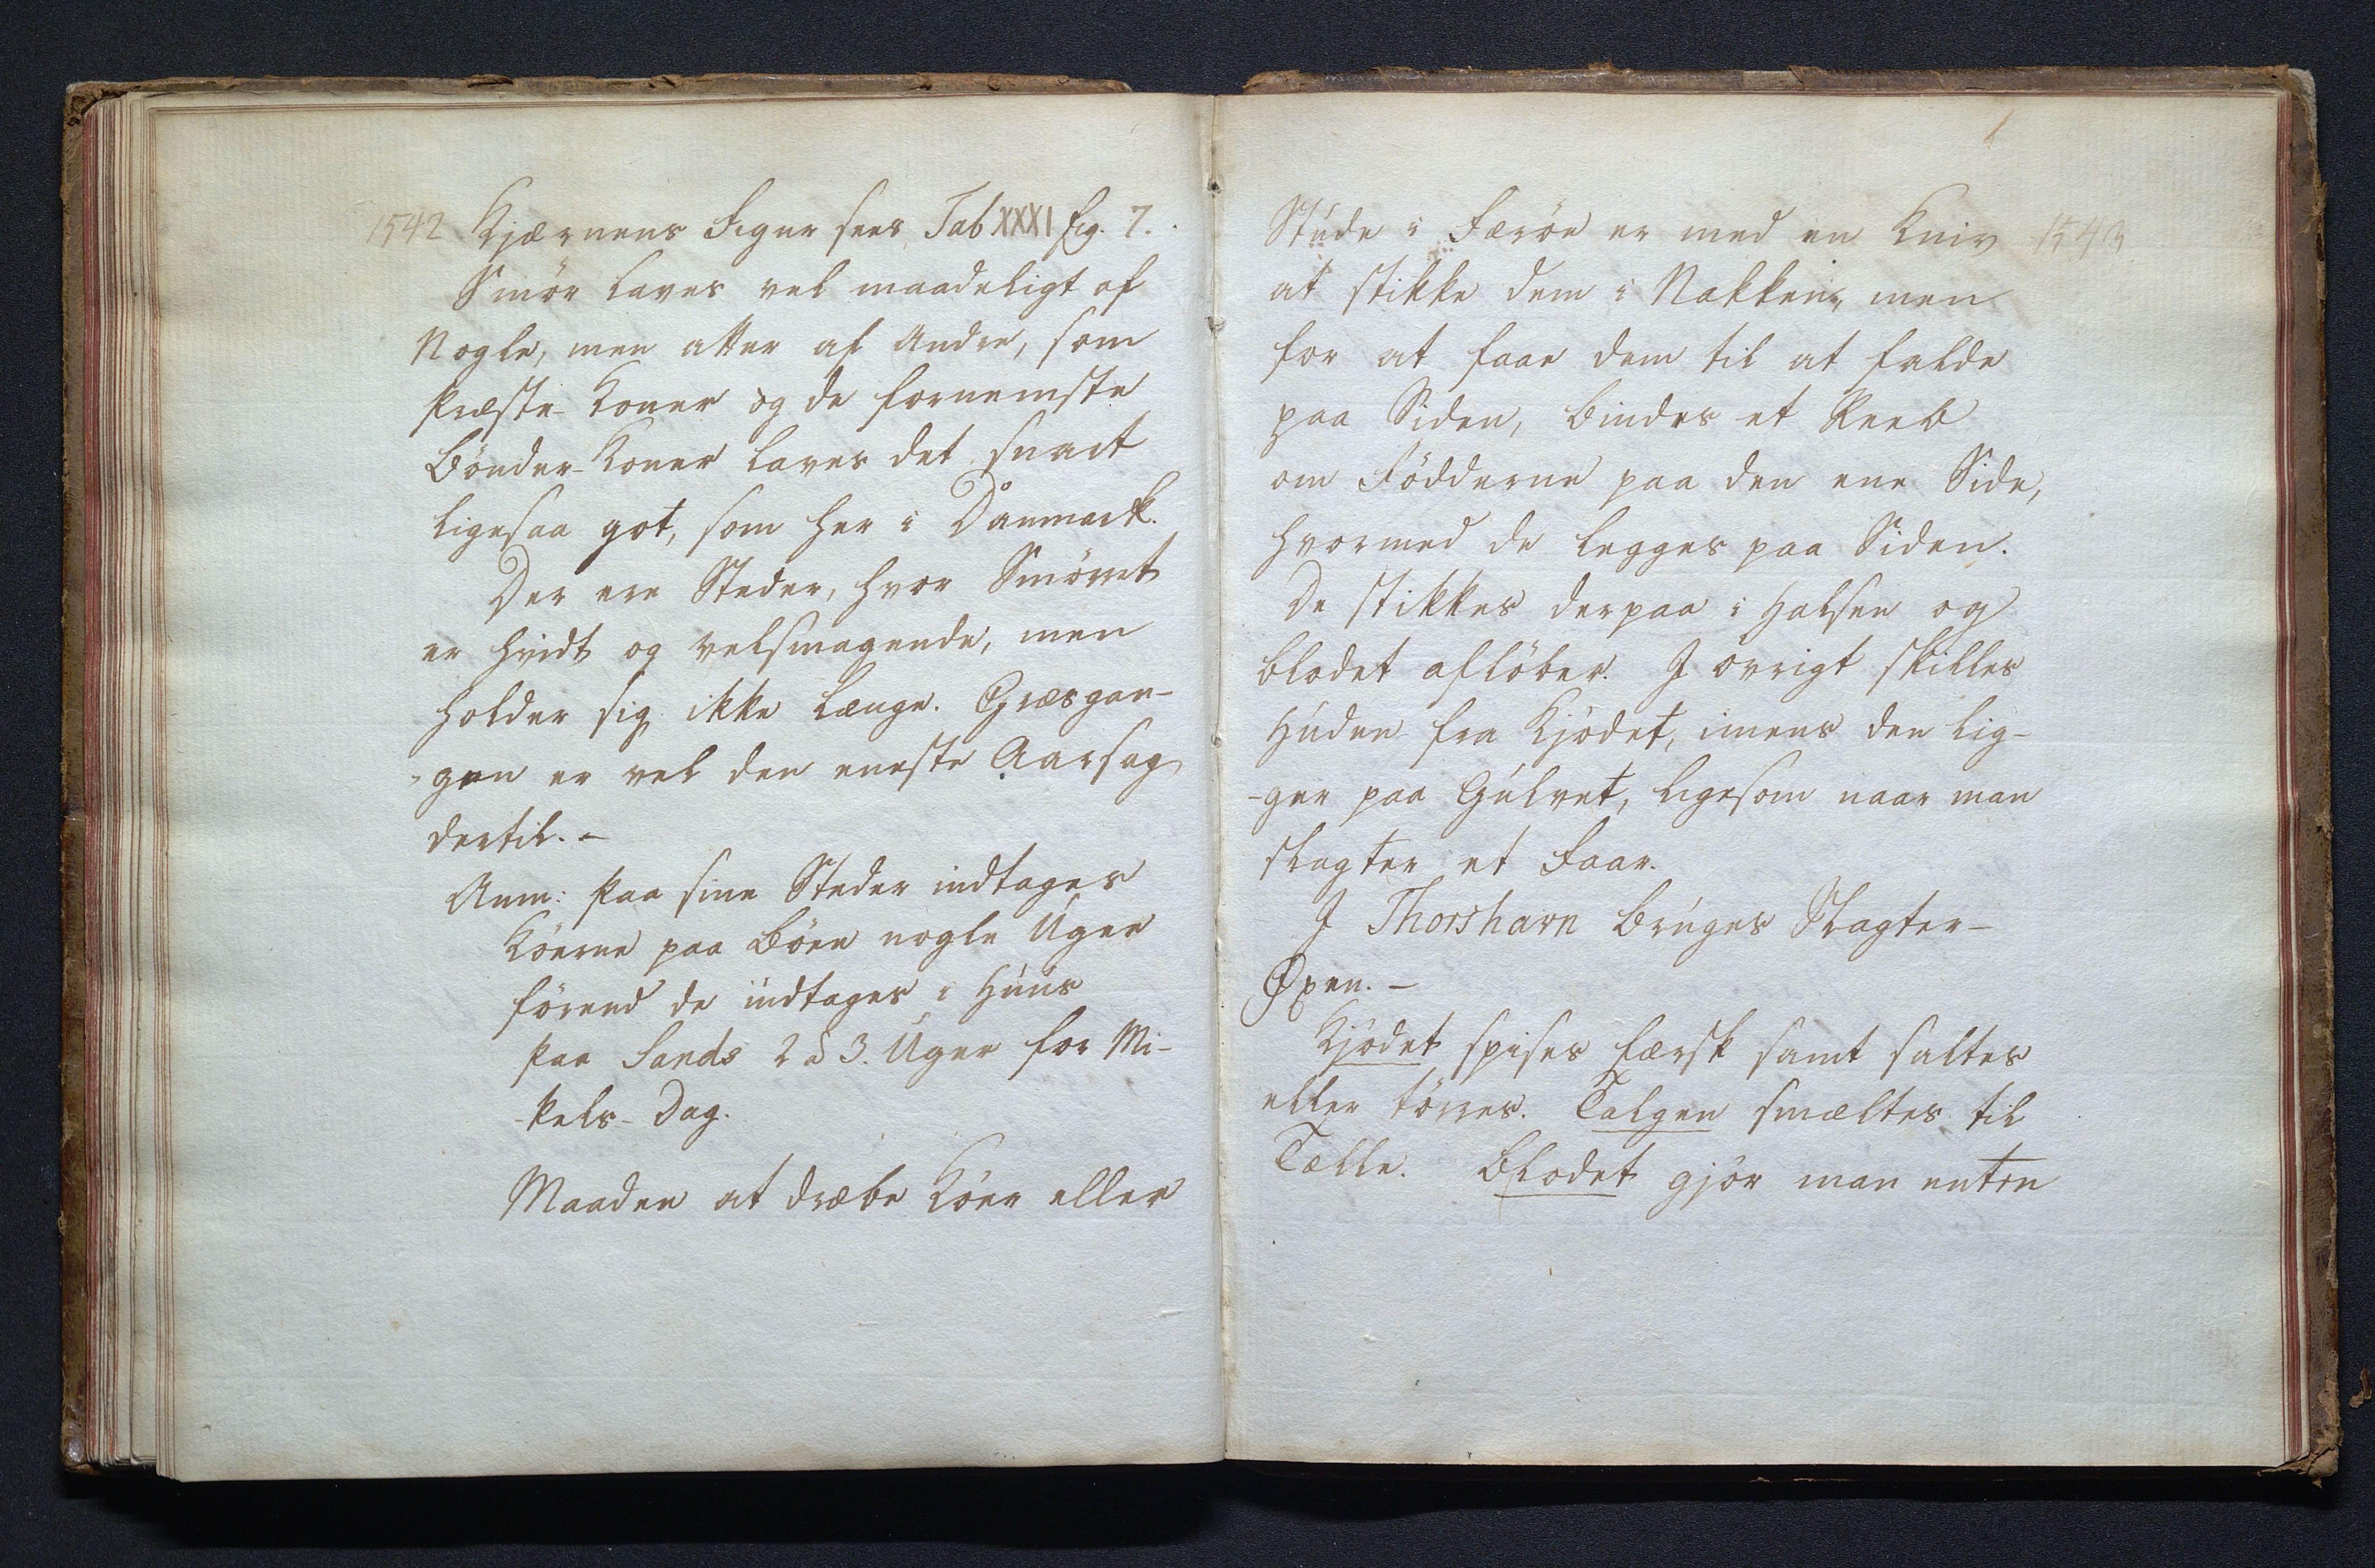 1542 Kjærnens Figur sees Tab XXXI fig. 7.
Smör laves vel maadeligt af
Nogle, men atter af Andre, som
Præste-Koner og de fornemste
Bönder-Koner laves det snart
ligesaa got, som her i Danmark.
Der ere Steder, hvor Smörret
er hvidt og velsmagende, men
holder sig ikke længe. Græsgan-
-gen er vel den eneste Aarsag
dertil. -
Anm: Paa sine Steder indtages
Köerne paa Böen nogle Uger
förend de indtages i Huus
Paa Sands 2 à 3. Uger for Mi-
-kels-Dag.
Maaden at dræbe Köer eller
Stude i Færöe er med en Kniv 1543
at stikke dem i Nakken, men
for at faae dem til at falde
paa Siden, bindes et Reeb
om Födderne paa den ene Side,
hvormed de legges paa Siden.
De stikkes derpaa i Halsen og
blodet aflöber. I övrigt skilles
Huden fra Kjödet, imens den lig-
-ger paa Gulvet, ligesom naar man
slagter et Faar.
I Thorshavn bruges Slagter-
Öxen. -
Kjödet spises færsk samt saltes
eller törres. Talgen smæltes til
Tælle. Blodet gjör man enten